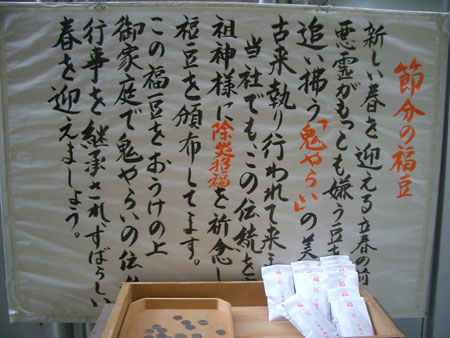 節分の福豆
新しい春を迎える立春の前
悪霊がもっとも嫌う豆
追い拂う「鬼やらい」の美
古来執り行われて来ま
当社でも、この伝統を
祖神様に除災招福を祈念し
福豆を頒布してます。
この福豆をおうけの上
御家庭で鬼やらいの伝
行事を継承されすばらしい
春を迎えましょう。